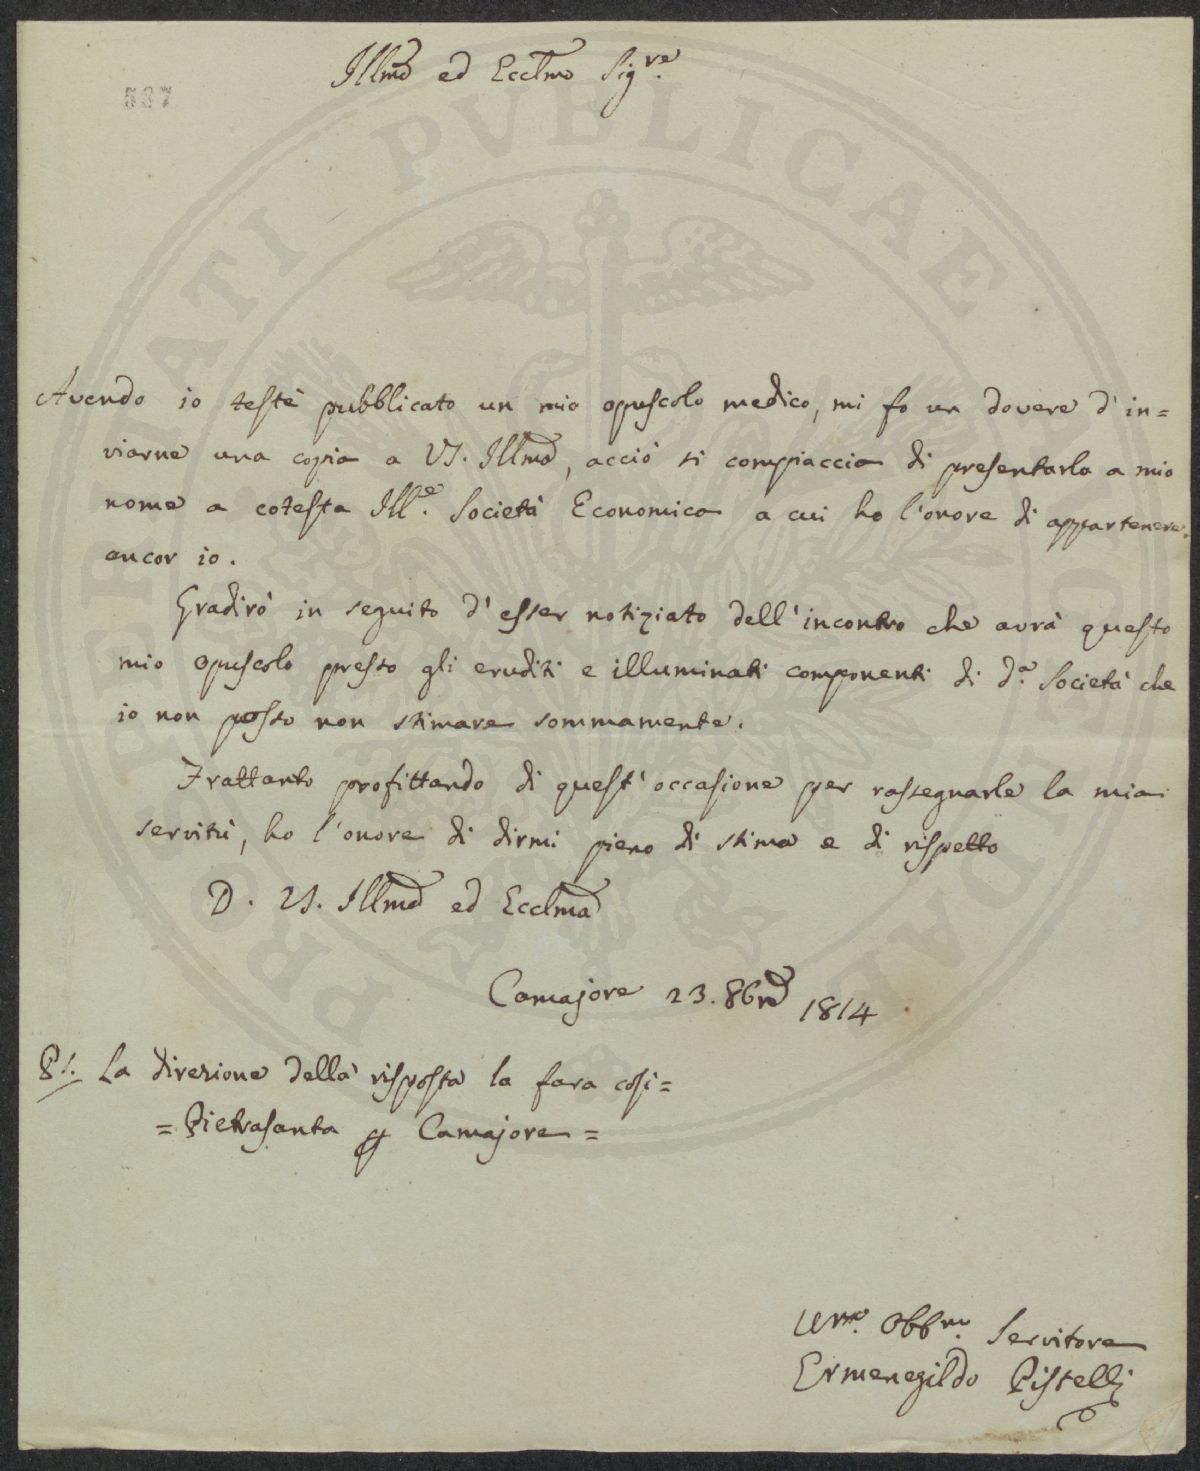 Illmo ed Ecclmo Sigre.
537
Avendo io testè pubblicato un mio opuscolo medico, mi fo un dovere d'in=
viarne una copia a VS. Illma, acciò si compiaccia di presentarla a mio
nome a cotesta Ille. Società Economica a cui ho l'onore di appartenere
ancor io.
Gradirò in seguito d'esser notiziato dell'incontro che avrà questo
mio opuscolo presso gli eruditi e illuminati componenti di da. Società che
io non posso non stimare sommamente.
Frattanto profittando di quest'occasione per rassegnarle la mia
servitù, ho l'onore di dirmi pieno di stima e di rispetto
D. VS. Illma ed Ecclma
Camajore 23. 8bre 1814
PS. La direzione della risposta la farà così=
=Pietrasanta p Camajore=
Umo. Obbmo. Servitore
Ermenegildo Pistelli
PROPRIETATI PVBLICAE